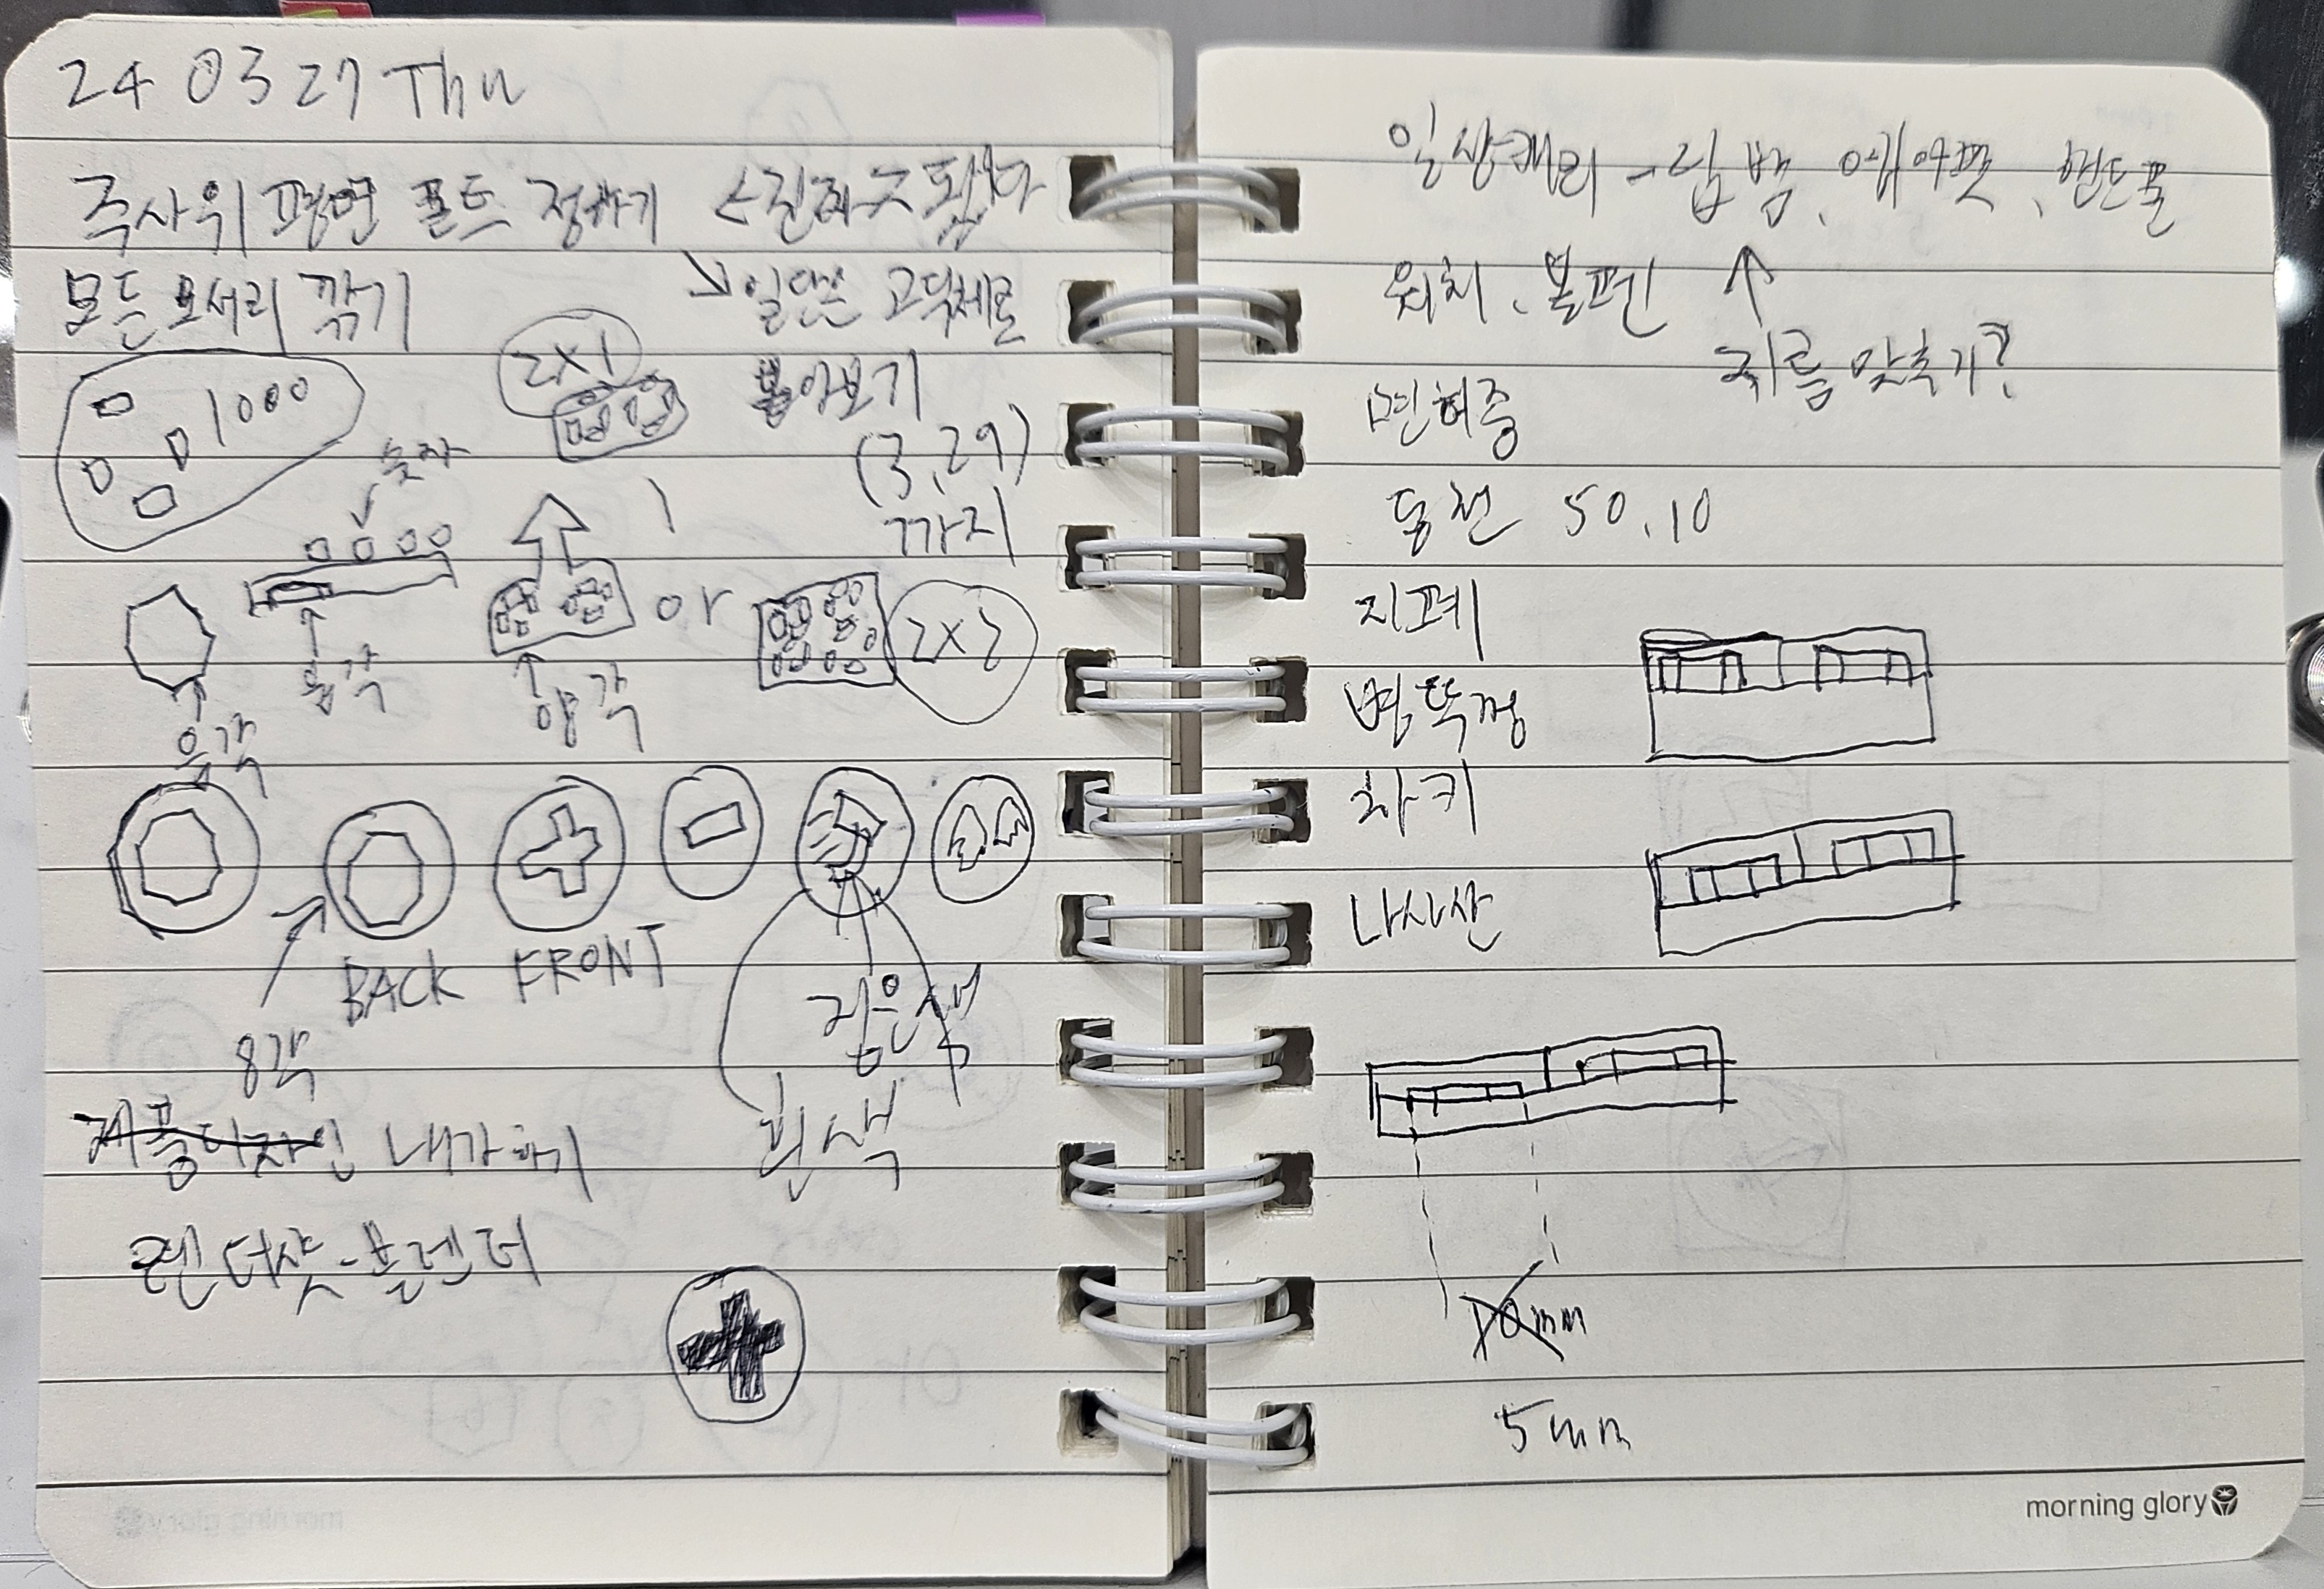 24 03 27 Thu
주사위 평면 폰트 정하기
모든 모서리 깎기
일단은 고딕체로
뽑아보기
(3,29)
까지
1000
2X1
숫자
음각
음각
양각
or
2X2
BACK FRONT
8각
검은색
흰색
제품디자인 내가 하기
렌더샷-블렌더
일상캐리 - 립밤, 에어팟, 핸드폰
워치, 볼펜
지름 맞추기?
면허증
동전 50, 10
지폐
병뚜껑
차키
나사산
10mm
5mm
morning glory